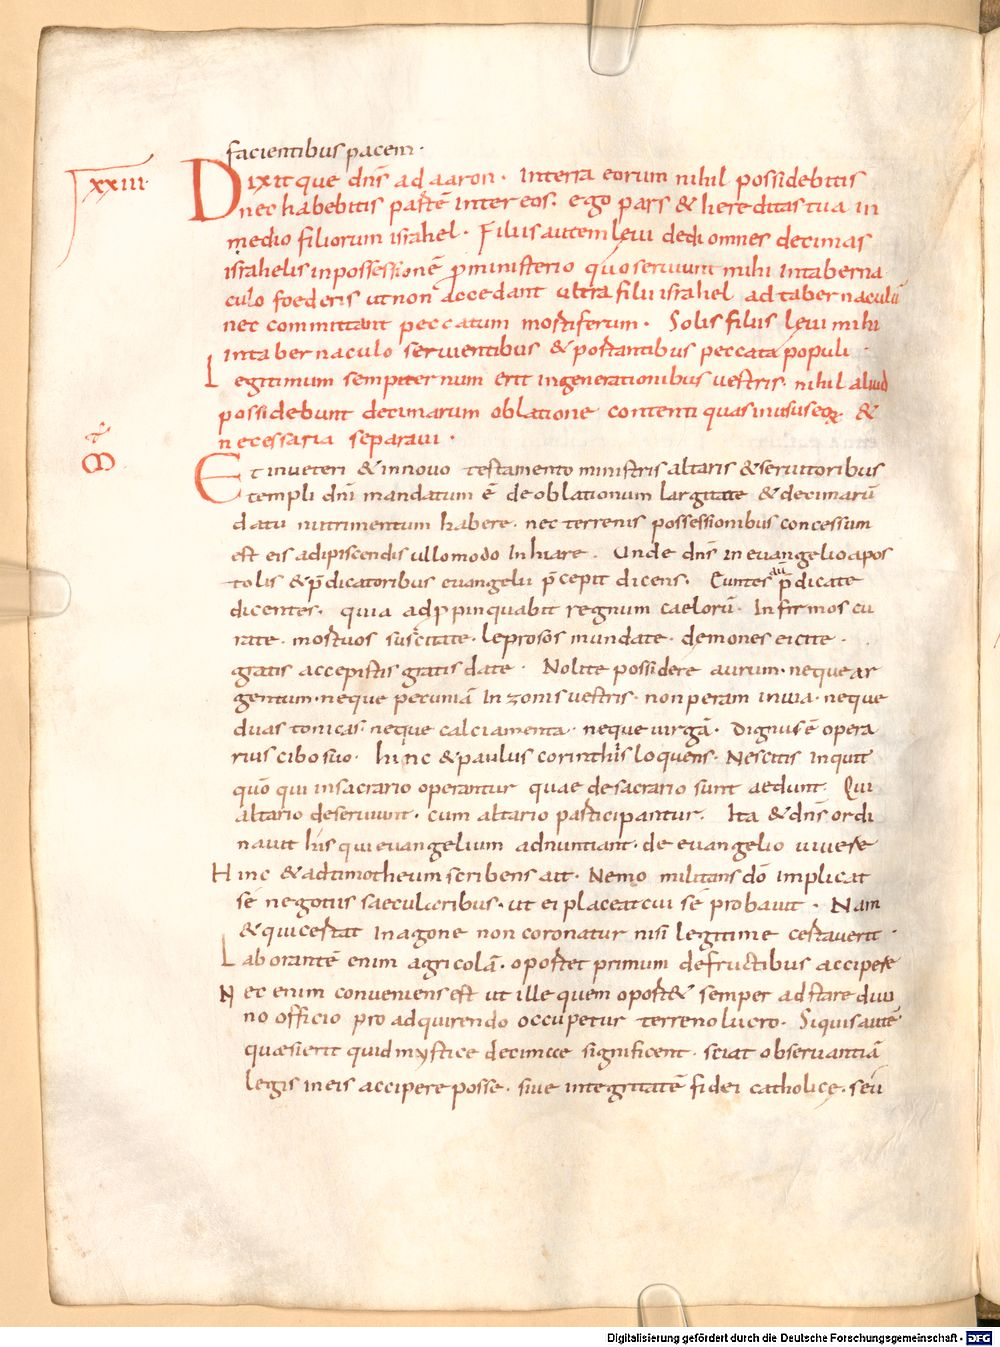 facientibus pacem·
xxiii· Dixitque dn̄s ad aaron· Interra eorum nihil possidebitis
nec habebitis partē inter eos; ego pars & hereditas tua in
medio filiorum israhel· Filiis autem leui dedi omnes decimas
israhelis in possessionē p̄ ministerio quo seruiunt mihi in taberna
culo foederis ut non accedant ultra filii israhel ad tabernaculū
nec committant peccatum mortiferum· Solis filiis leui mihi
in tabernaculo seruientibus & portantibus peccata populi·
Legitimum sempiternum erit in generationibus uestris· nihil aliud
possidebunt decimarum oblatione contenti quas in usus eoꝝ &
necessaria separaui·
Et in ueteri & in nouo testamento ministris altaris & seruitoribus
templi dn̄i mandatum ē de oblationum largitate & decimarū
datu nutrimentum habere· nec terrenis possessionibus concessum
est eis adipiscendis ullomodo Inhiare· Unde dn̄s in euangelio apos
tolis & p̄dicatoribus euangelii p̄cepit dicens· Euntes aū p̄dicate
dicentes· quia adp̄pinquabit regnum caelorū· Infirmos cu
rate· mortuos suscitate· leprosos mundate· demones eicite·
gratis accepistis gratis date· Nolite possidere aurum· neque ar
gentum· neque pecuniā In zonis uestris· non peram in uia· neque
duas tonicas· neque calciamenta· neque uirgā· Dignus ē opera
rius cibo suo· hinc & paulus corinthiis loquens· Nescitis inquit
quō qui in sacrario operantur quae de sacrario sunt aedunt· Qui
altario deseruiunt· cum altario participantur· Ita & dn̄s ordi
nauit his qui euangelium adnuntiant· de euangelio uiuere
Hinc & ad timotheum scribens ait· Nemo militans dō implicat
sē negotiis saecularibus· ut ei placeat cui sē probauit· Nam
& qui certat In agone non coronatur nisi legitime certauerit·
Laborantē enim agricolā· oportet primum de fructibus accipere
Nec enim conueniens est ut ille quem oport& semper adstare diui
no officio pro adquirendo occupetur terreno lucro· Siquis autē
quæsierit quid mystice decimae significent· sciat obseruantiā
legis in eis accipere posse· siue integritatē fidei catholice· seu
Digitalisierung gefördert durch die Deutsche Forschungsgemeinschaft - DFG